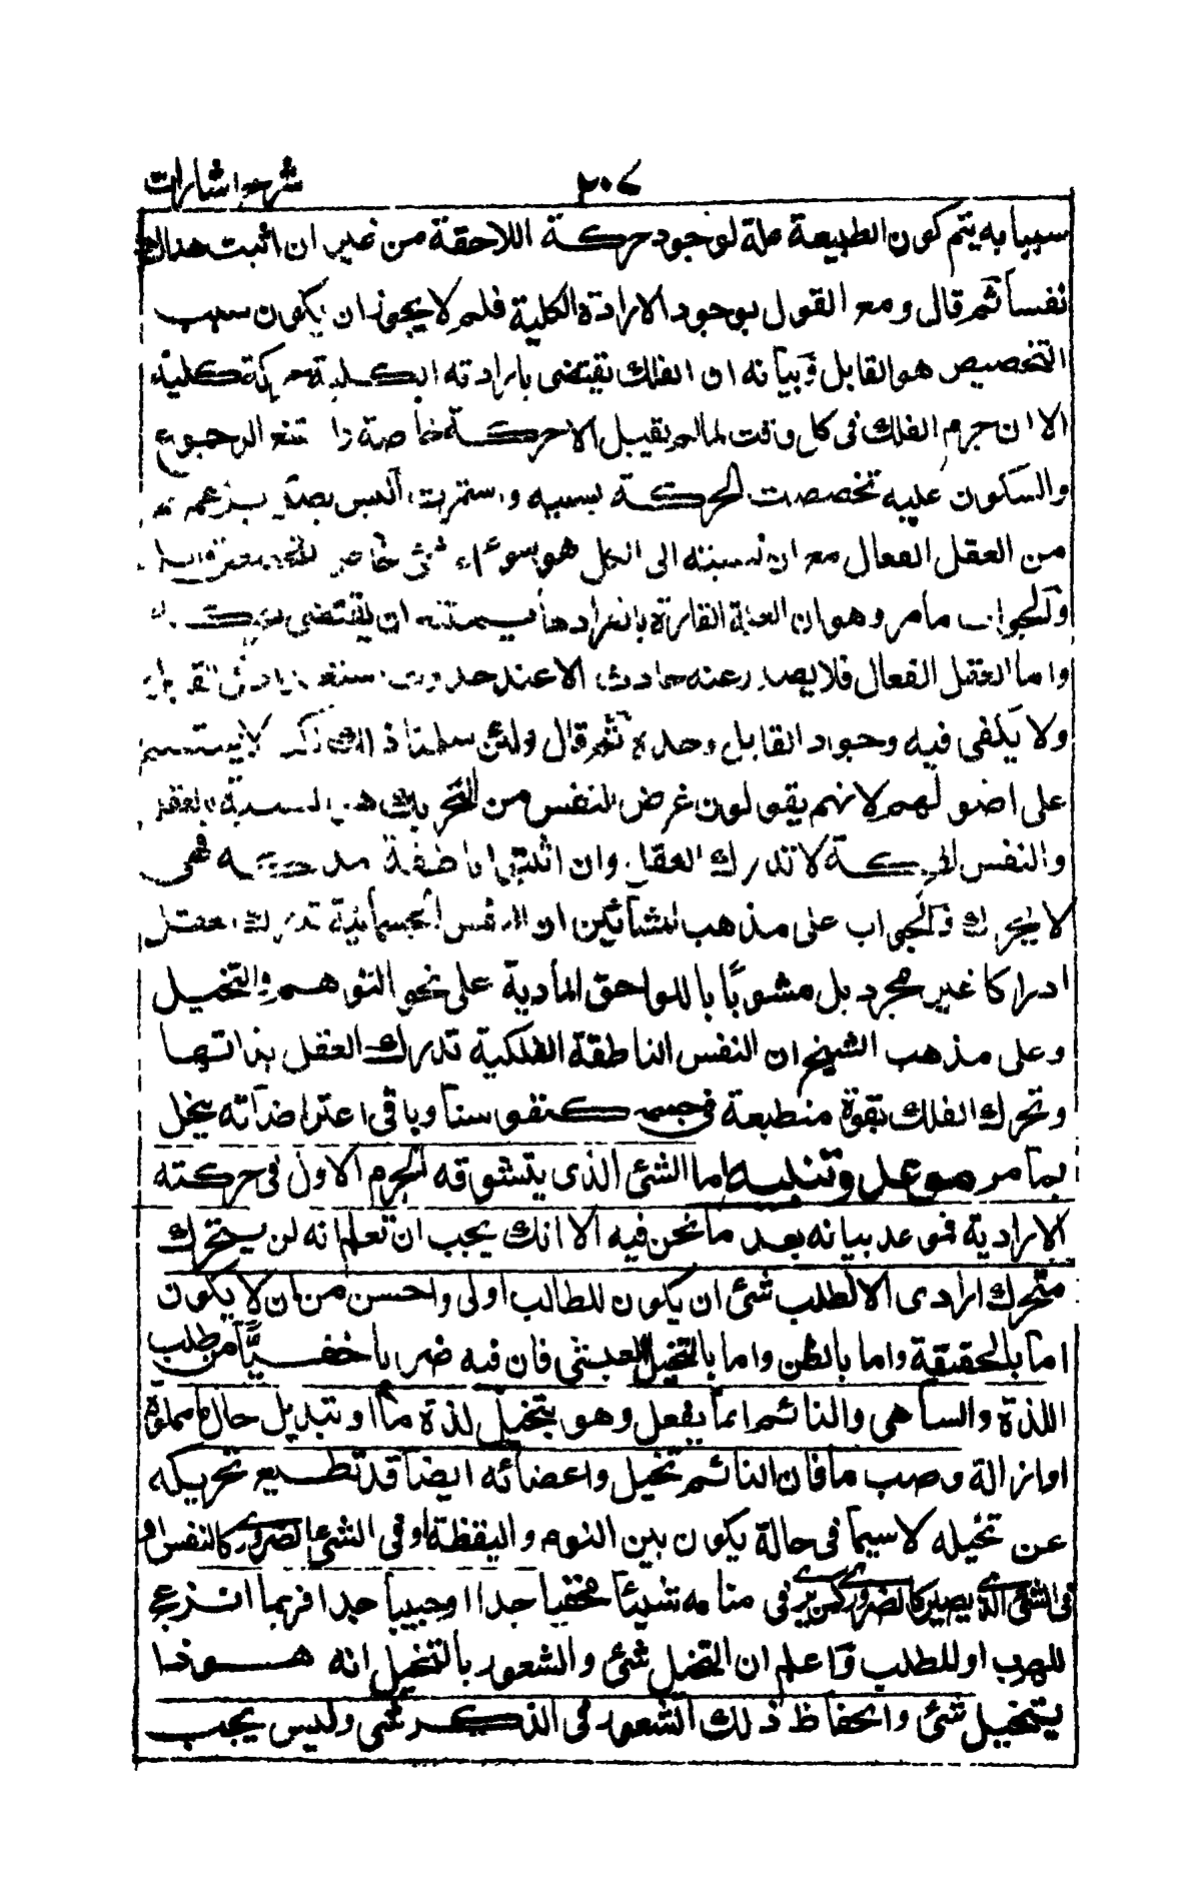 ٢٠٧ شرح اشارات
سببا به يتم كون الطبيعة علة لوجود حركة اللاحقة من غير ان اثبت هذا
نفساً ثم قال ومع القول بوجود الارادة الكلية فلم لا يجوز ان يكون سبب
التخصيص هو القابل وبيانه ان الفلك يقتضى بارادته الكلية حركة كلية
الا ان جرم الفلك فى كل وقت لما لم يقبل الا حركة خاصة
والسكون عليه تخصصت الحركة بسببه واستمرت اليس بزعمهم
من العقل الفعال مع ان نسبته الى الكل هو سواء شئ خاص
والجواب ما مر وهو ان العلة القارة بانفرادها يمتنع ان يقتضى
واما العقل الفعال فلا يصدر عنه حادث الا عند حدوث
ولا يكفى فيه وجود القابل وحده ثم قال ولئن سلمنا ذلك لا يستمر
على اصولهم لانهم يقولون غرض النفس من التحريك هى بالعقل
والنفس لا تدرك العقل وان اثبتوا ناطقة فهى
لا يحرك والجواب على مذهب المشائين ان النفس الجسمانية تدرك العقل
ادراكا غير مجرد بل مشوبًا باللواحق المادية على نحو التوهم والتخيل
وعلى مذهب الشيخ ان النفس الناطقة الفلكية تدرك العقل بذاتها
وتحرك الفلك بقوة منطبعة فى جسمه كنفوسنا وباقى اعتراضاته يخل
بما مر موعد وتنبيه اما الشئ الذى يتشوقه الجرم الاول فى حركته
الارادية فموعد بيانه بعد ما نحن فيه الا انك يجب ان تعلم انه لن يتحرك
متحرك ارادى الا لطلب شئ ان يكون للطالب اولى واحسن من ان لا يكون
اما بالحقيقة واما بالظن واما بالتخيل العبثى فان فيه ضربا خفيًّا من طلب
اللذة والساهى والنائم انما يفعل وهو يتخيل لذة ما او تبديل حال ما مملولة
او ازالة وصب ما فان النائم تخيل واعضائه ايضا قد تطيع تحريكه
عن تخيله لا سيما فى حالة يكون بين النوم واليقظة او فى الشئ الضرورى كالنفس او
فى الشئ الذى يصير كالضرورى كمن يرى فى منامه شيئا مخفيا جدا او حبيبا جدا فربما انزعج
للهرب او للطلب واعلم ان التخيل شئ والشعور بالتخيل انه هو ذا
يتخيل شئ وانحفاظ ذلك الشعور فى الذكر شئ وليس يجب